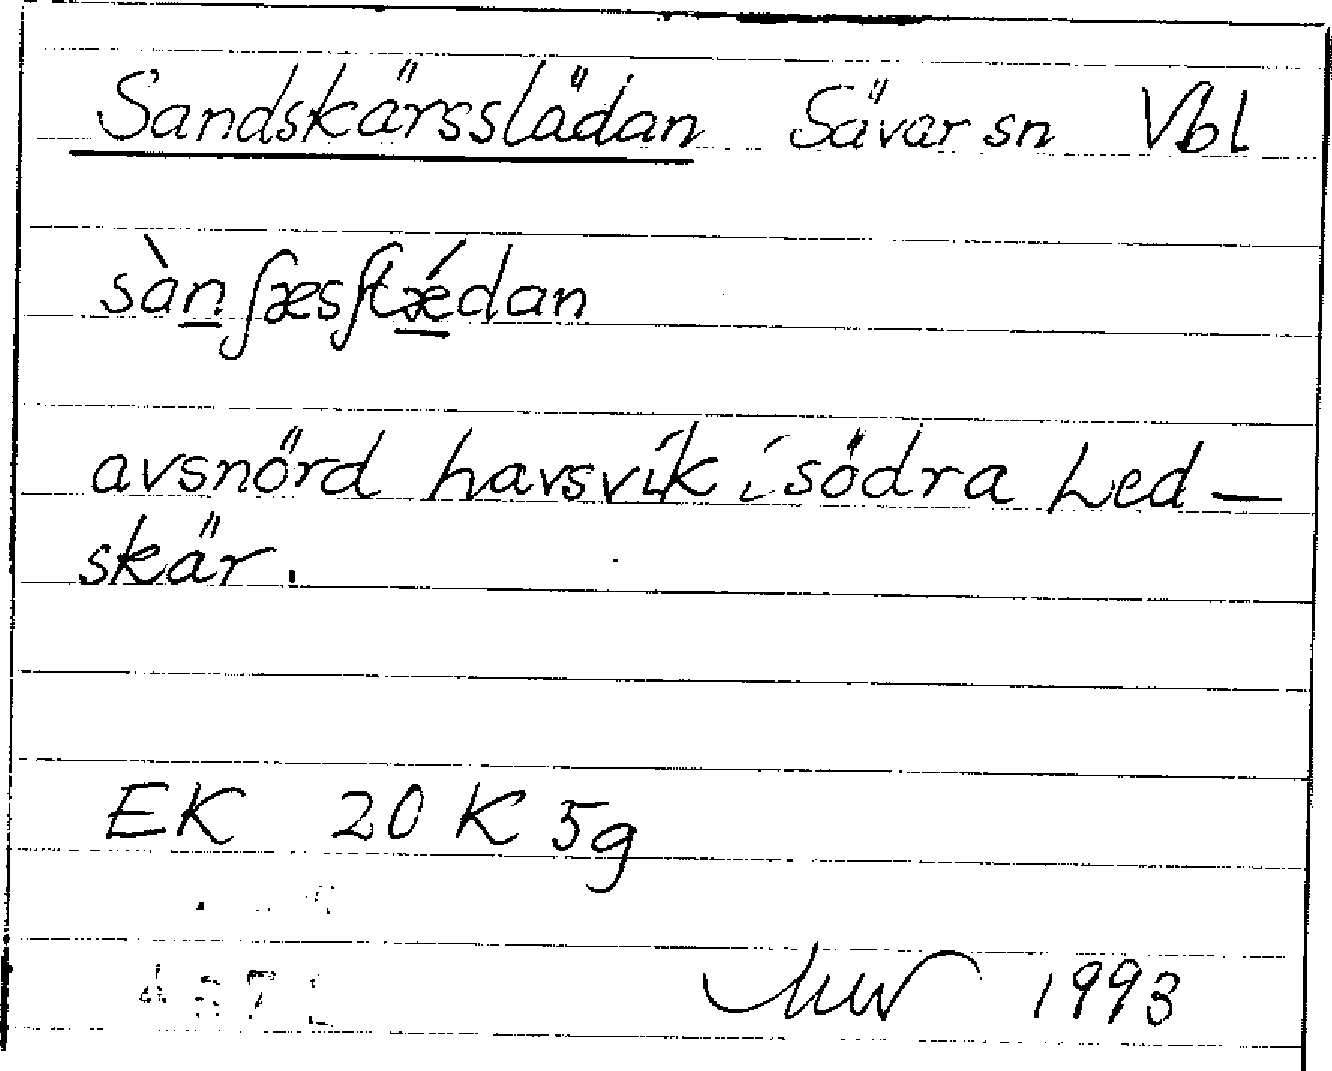 Sandskärsslädan Sävar sn Vbl
sànʃæsʃtǽdan
avsnörd havsvik i södra Led-
skär.
EK 20 K 5g
1993